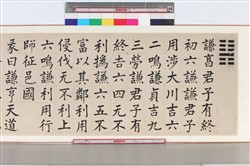 謙亨君子有終
初六謙謙君子
用涉大川吉六
二鳴謙貞吉九
三勞謙君子有
終吉六四无不
利撝謙六五不
富以其鄰利用
侵伐无不利上
六鳴謙利用行
師征邑國
彖曰謙亨天道